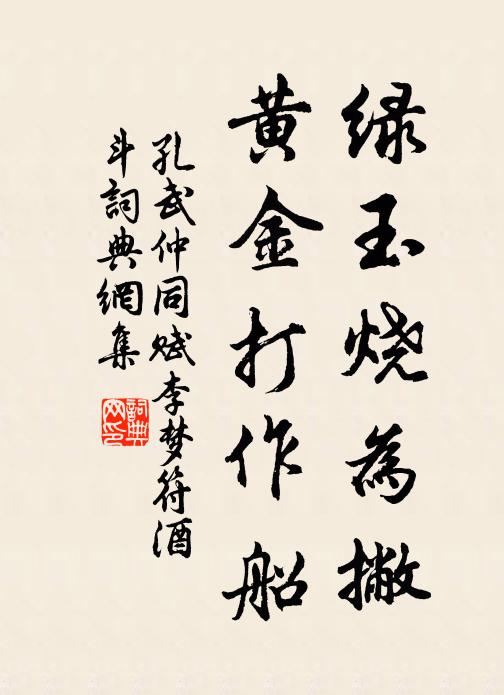 绿玉烧為撇
黄金打作船
孔武仲同赋李梦符酒
斗詞典網集
詞典
网印